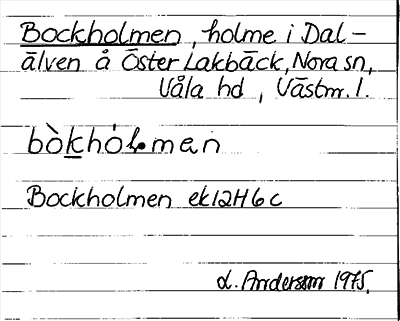 Bockholmen, holme i Dal-
älven å Öster Lakbäck, Nora sn,
Våla hd, Västm. l.
bòkhólmen
Bockholmen ek12H6c
L. Andersson 1975.